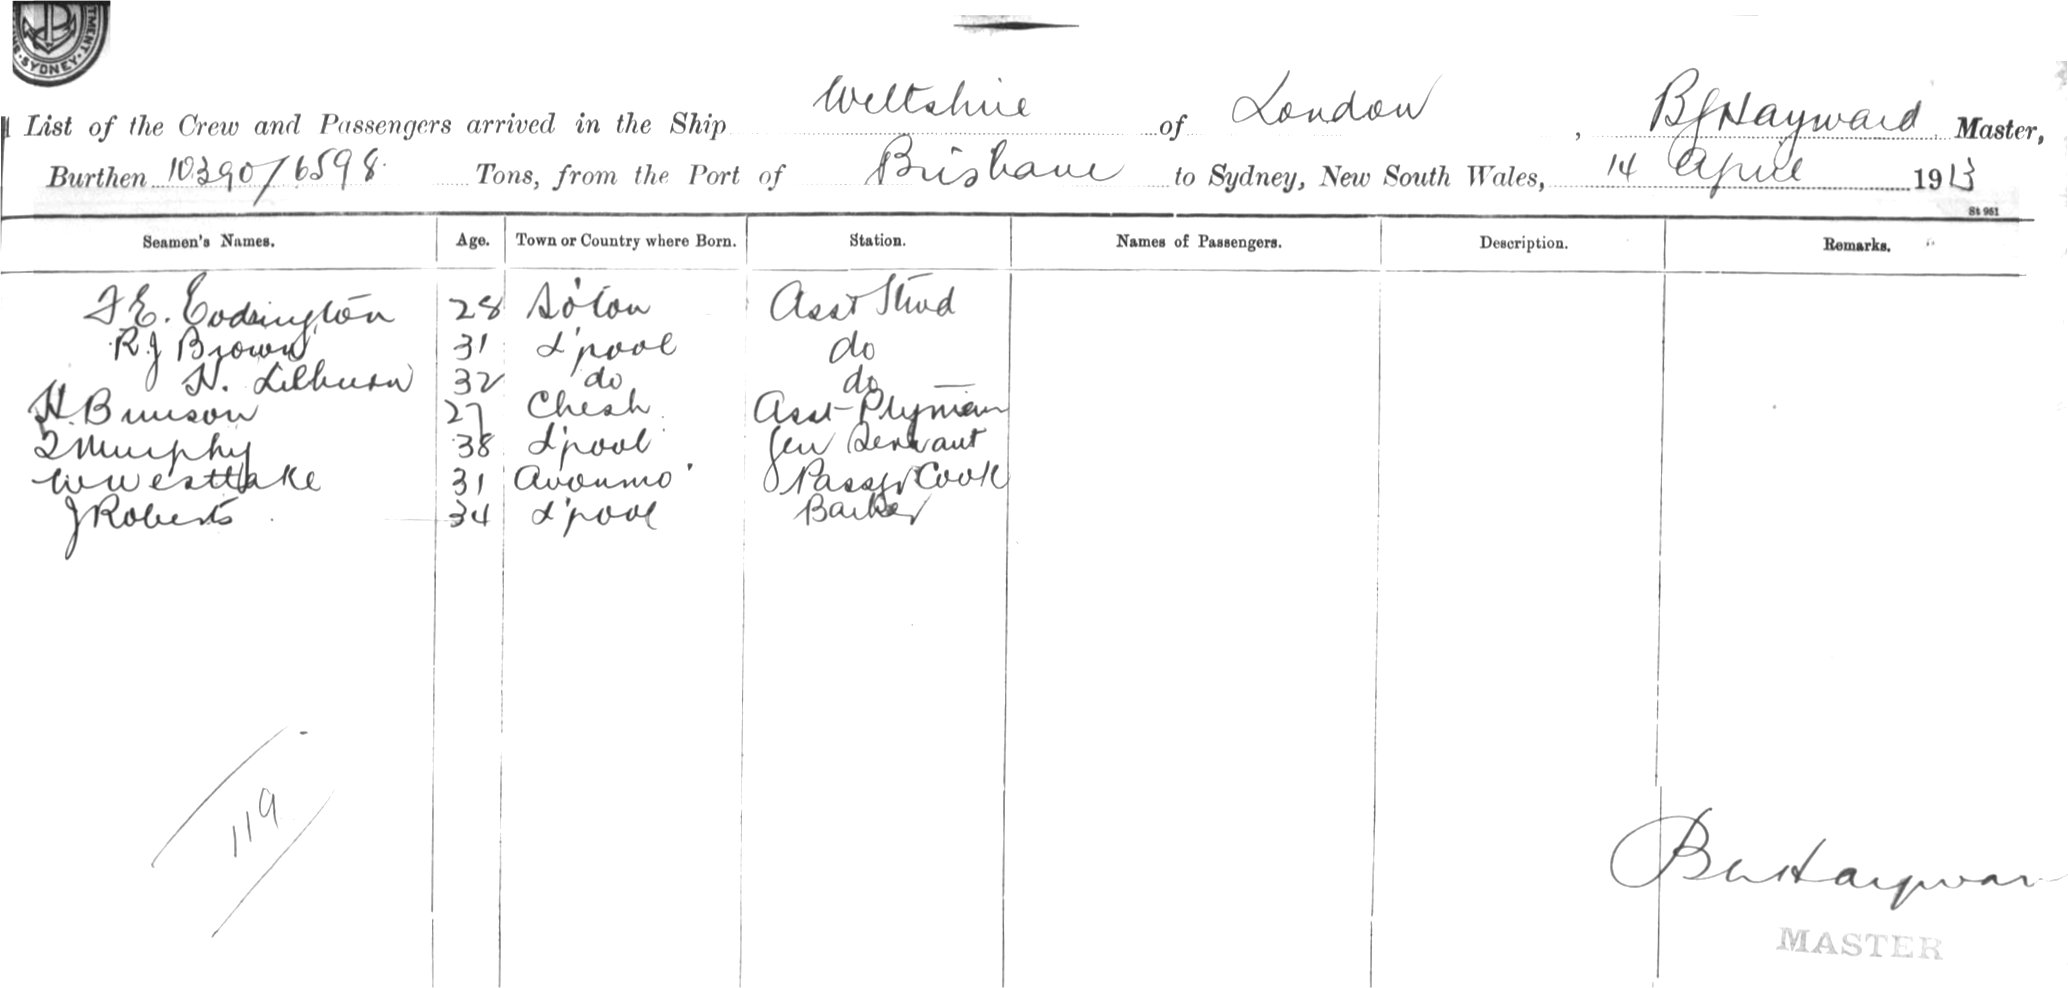 TMENT. SYDNEY.
List of the Crew and Passengers arrived in the Ship Wiltshire of London, B J Hayward Master,
Burthen 10390/6598 Tons, from the Port of Brisbane to Sydney, New South Wales, 14 April 1913
St 951
Seamen's Names. Age. Town or Country where Born. Station. Names of Passengers. Description. Remarks.
F E. Codrington 28 So'ton Asst Stwd
R J Brown 31 L'pool do
H. Lilburn 32 do do
H. Brunson 27 Chesh. Asst Ptyman
T Murphy 38 L'pool Gen Servant
W Westlake 31 Avonmo' Passgr Cook
J Roberts 34 L'pool Barker
119
Hayward
MASTER